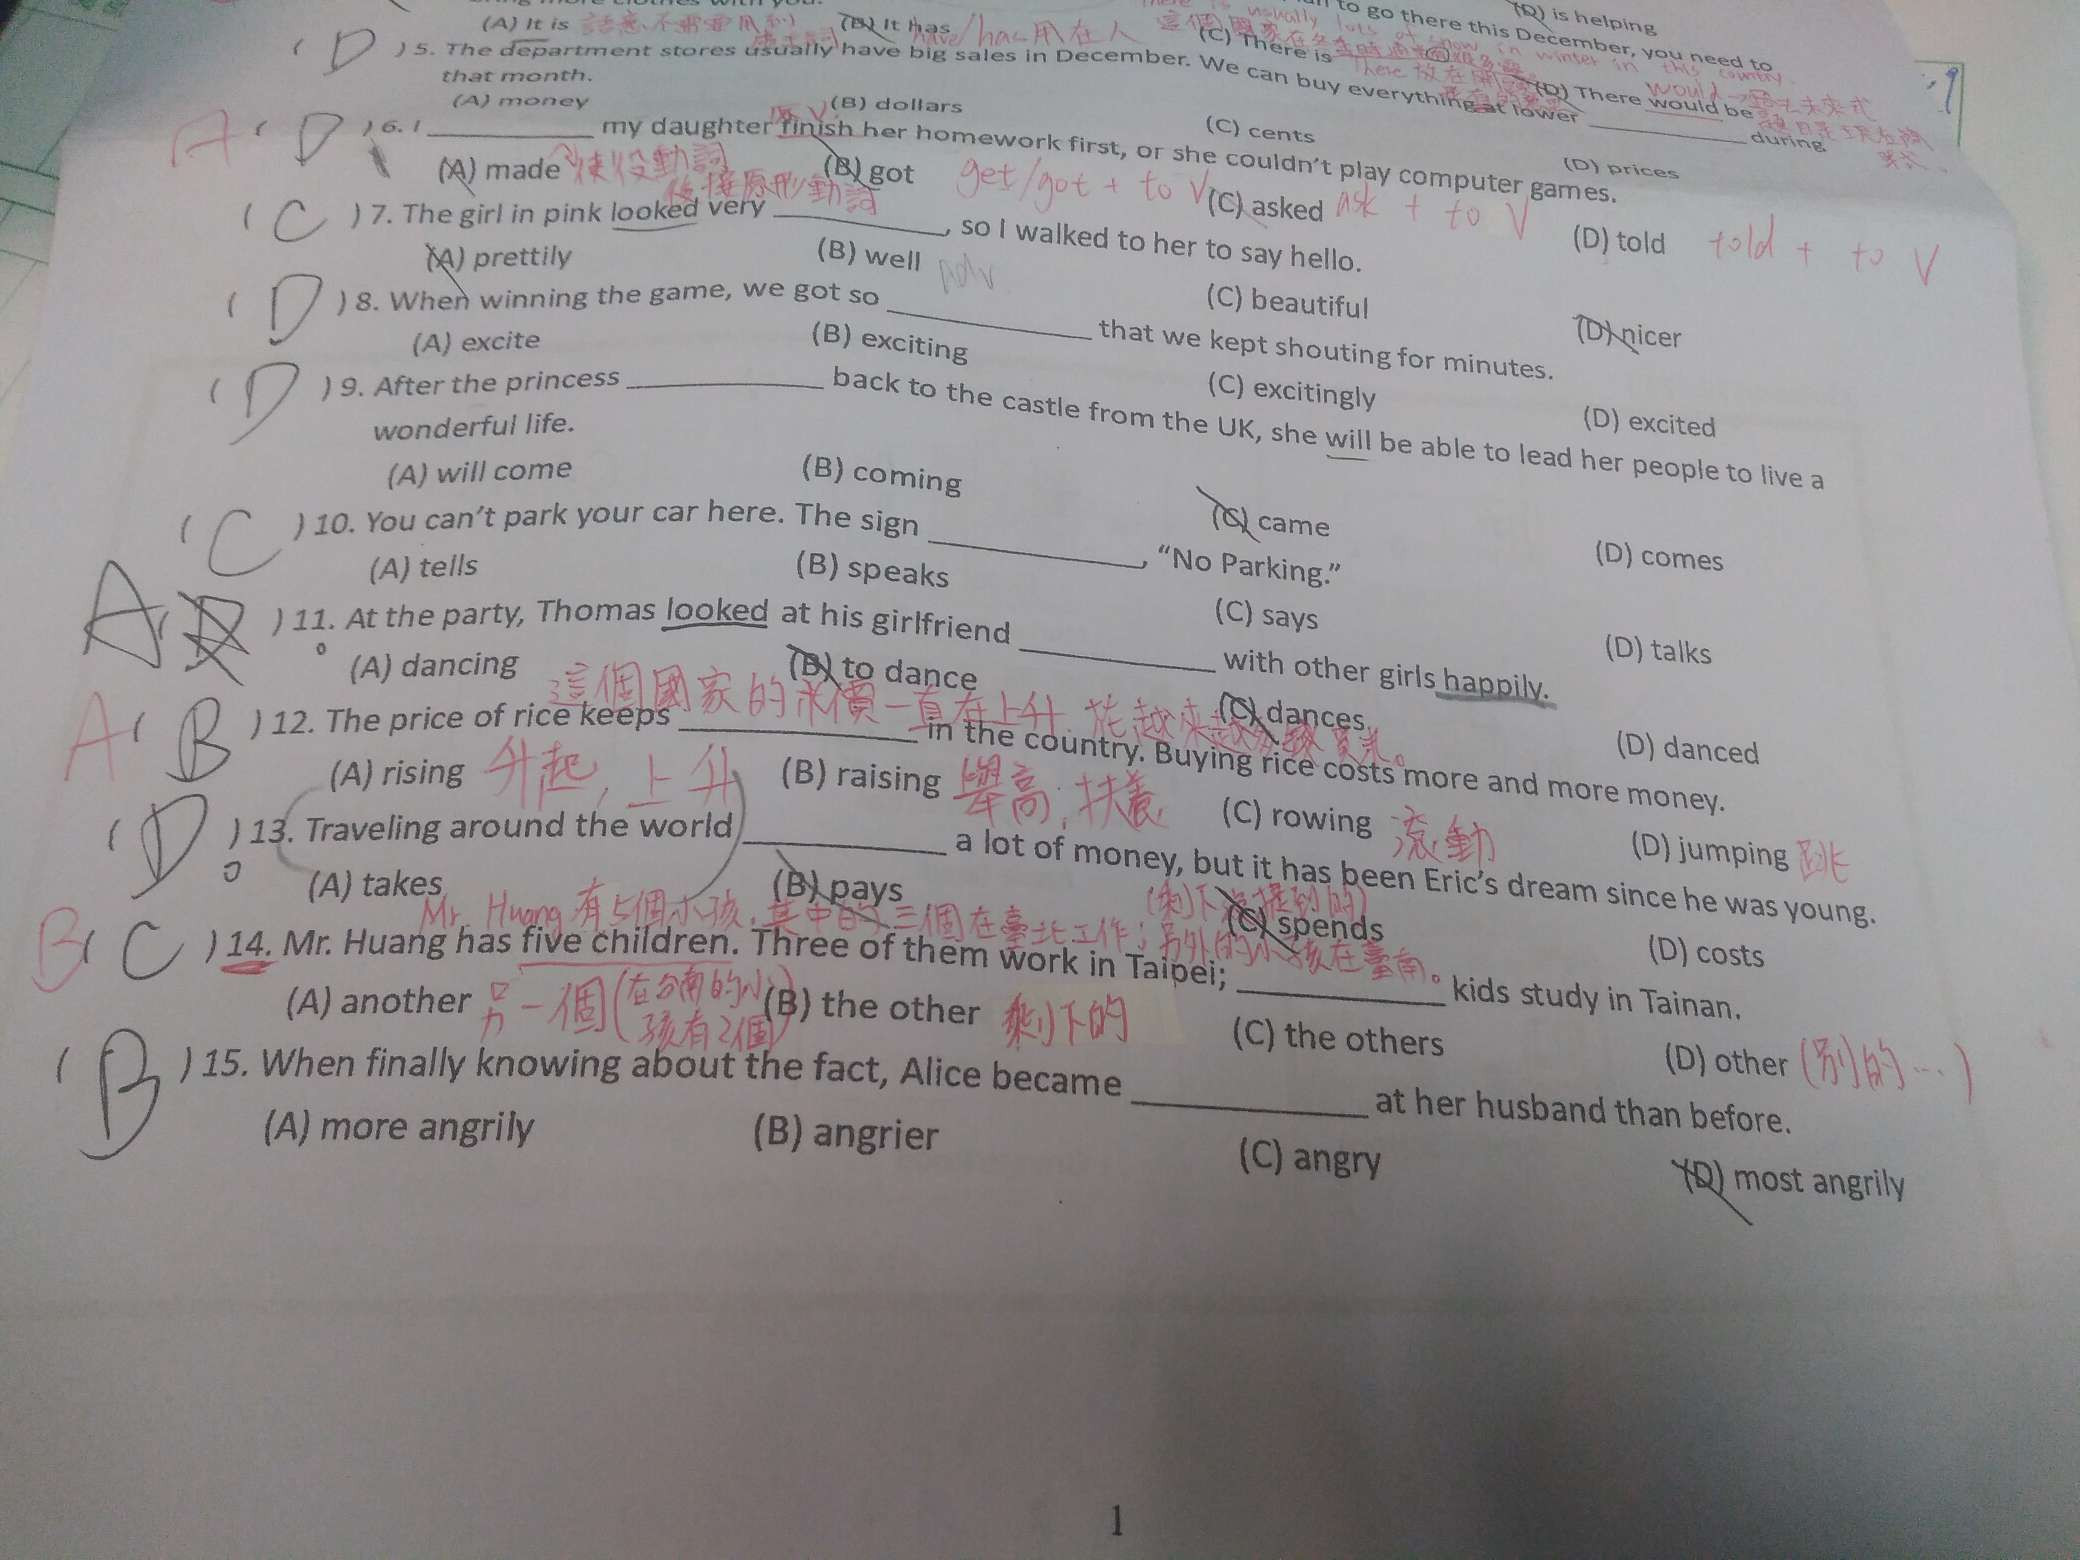 (A) It is 語意不需要用到 (B) It has have/has用在人 (D) is helping
to go there this December, you need to
(C) There is (D) There would be
( D ) 5. The department stores usually have big sales in December. We can buy everything at lower ________ during
that month.
(A) money (B) dollars (C) cents (D) prices
A ( D ) 6. I ________ my daughter finish her homework first, or she couldn't play computer games.
原V
(A) made 使役動詞 後接原形動詞 (B) got get/got + to V (C) asked ask + to V (D) told told + to V
( C ) 7. The girl in pink looked very ________, so I walked to her to say hello.
(A) prettily (B) well adv (C) beautiful (D) nicer
( D ) 8. When winning the game, we got so ________ that we kept shouting for minutes.
(A) excite (B) exciting (C) excitingly (D) excited
( D ) 9. After the princess ________ back to the castle from the UK, she will be able to lead her people to live a
wonderful life.
(A) will come (B) coming (C) came (D) comes
( C ) 10. You can't park your car here. The sign ________, “No Parking.”
(A) tells (B) speaks (C) says (D) talks
A ( ) 11. At the party, Thomas looked at his girlfriend ________ with other girls happily.
(A) dancing (B) to dance (C) dances (D) danced
這個國家的米價一直在上升
A ( B ) 12. The price of rice keeps ________ in the country. Buying rice costs more and more money.
(A) rising 升起,上升 (B) raising 舉高,扶養 (C) rowing 滾動 (D) jumping 跳
( D ) 13. Traveling around the world ________ a lot of money, but it has been Eric's dream since he was young.
(A) takes (B) pays (C) spends (D) costs
Mr. Huang 有5個小孩,其中的三個在臺北工作;另外的小孩在臺南。
B ( C ) 14. Mr. Huang has five children. Three of them work in Taipei; ________ kids study in Tainan.
(A) another 另一個(在台南的小孩有2個) (B) the other 剩下的 (C) the others (D) other (別的…)
( B ) 15. When finally knowing about the fact, Alice became ________ at her husband than before.
(A) more angrily (B) angrier (C) angry (D) most angrily
1